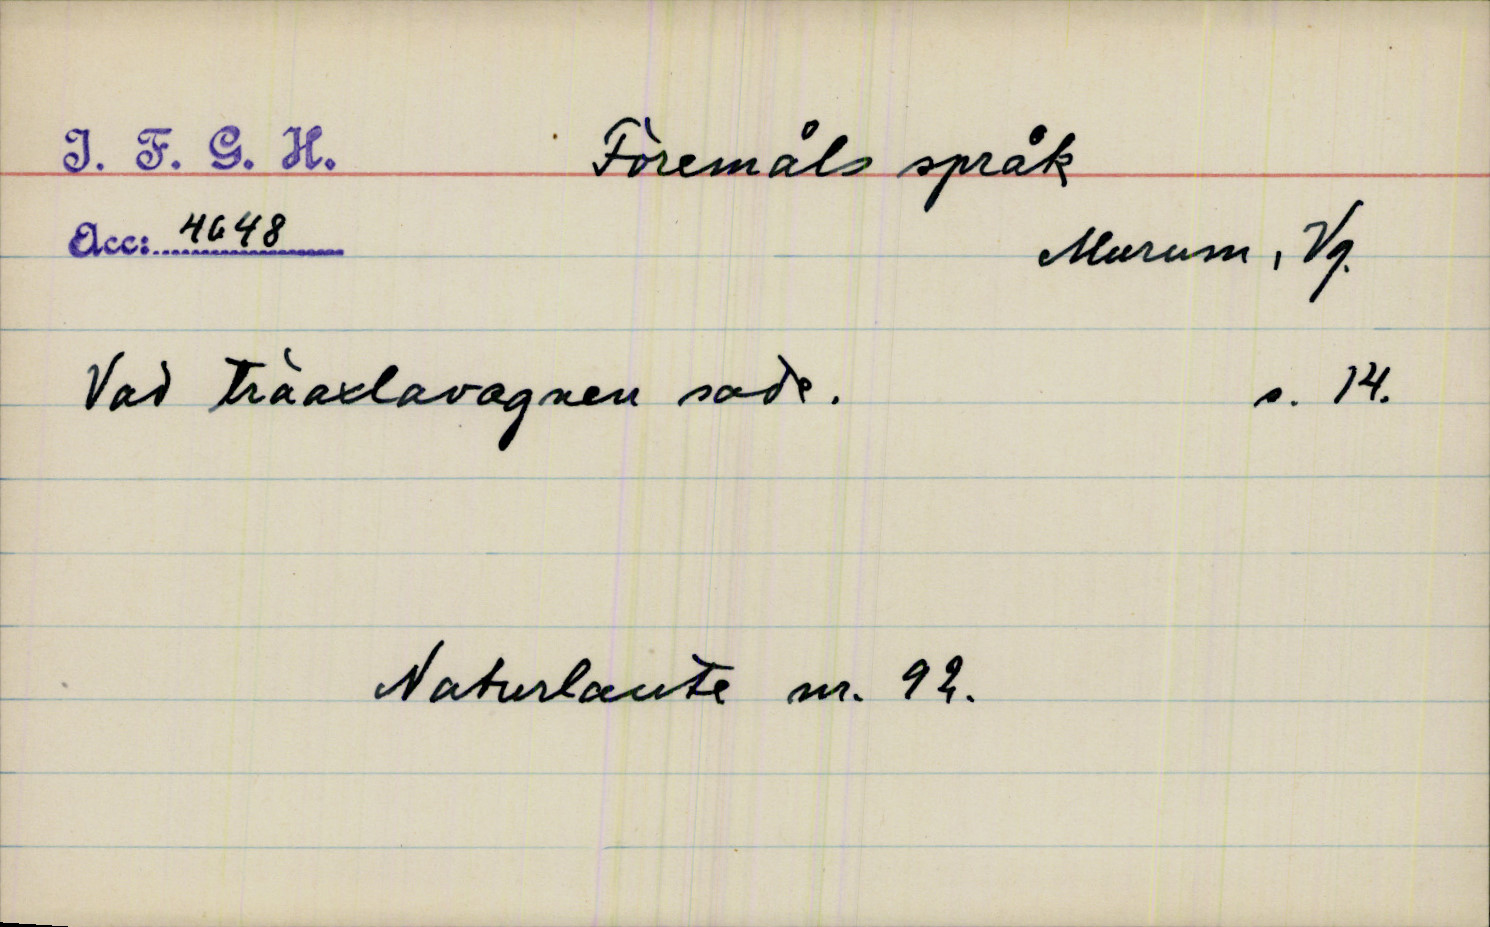 I. F. G. H.
Föremåls språk
Acc: 4648
Murum, Vg.
Vad träaxlavagnen sade. s. 14.
Naturlaute nr. 92.